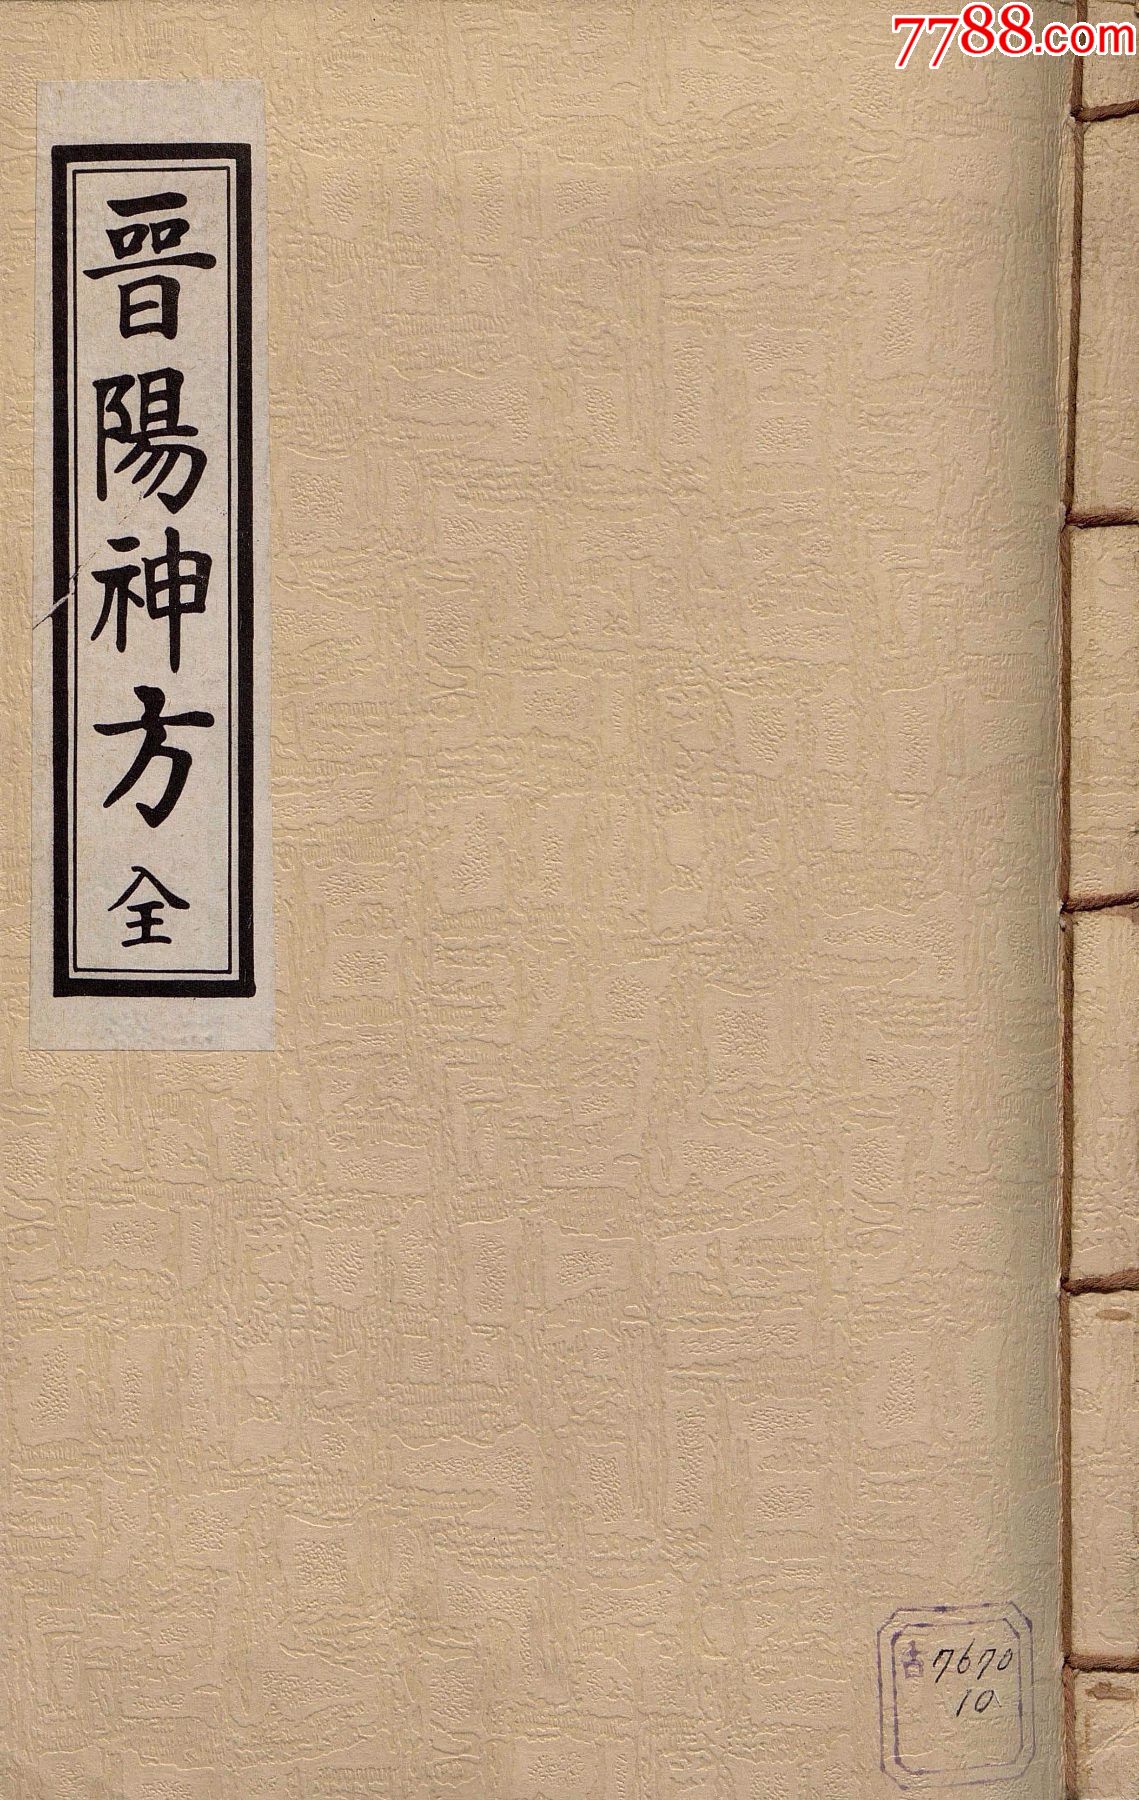 7788.com
晉陽神方 全
古 7670
10